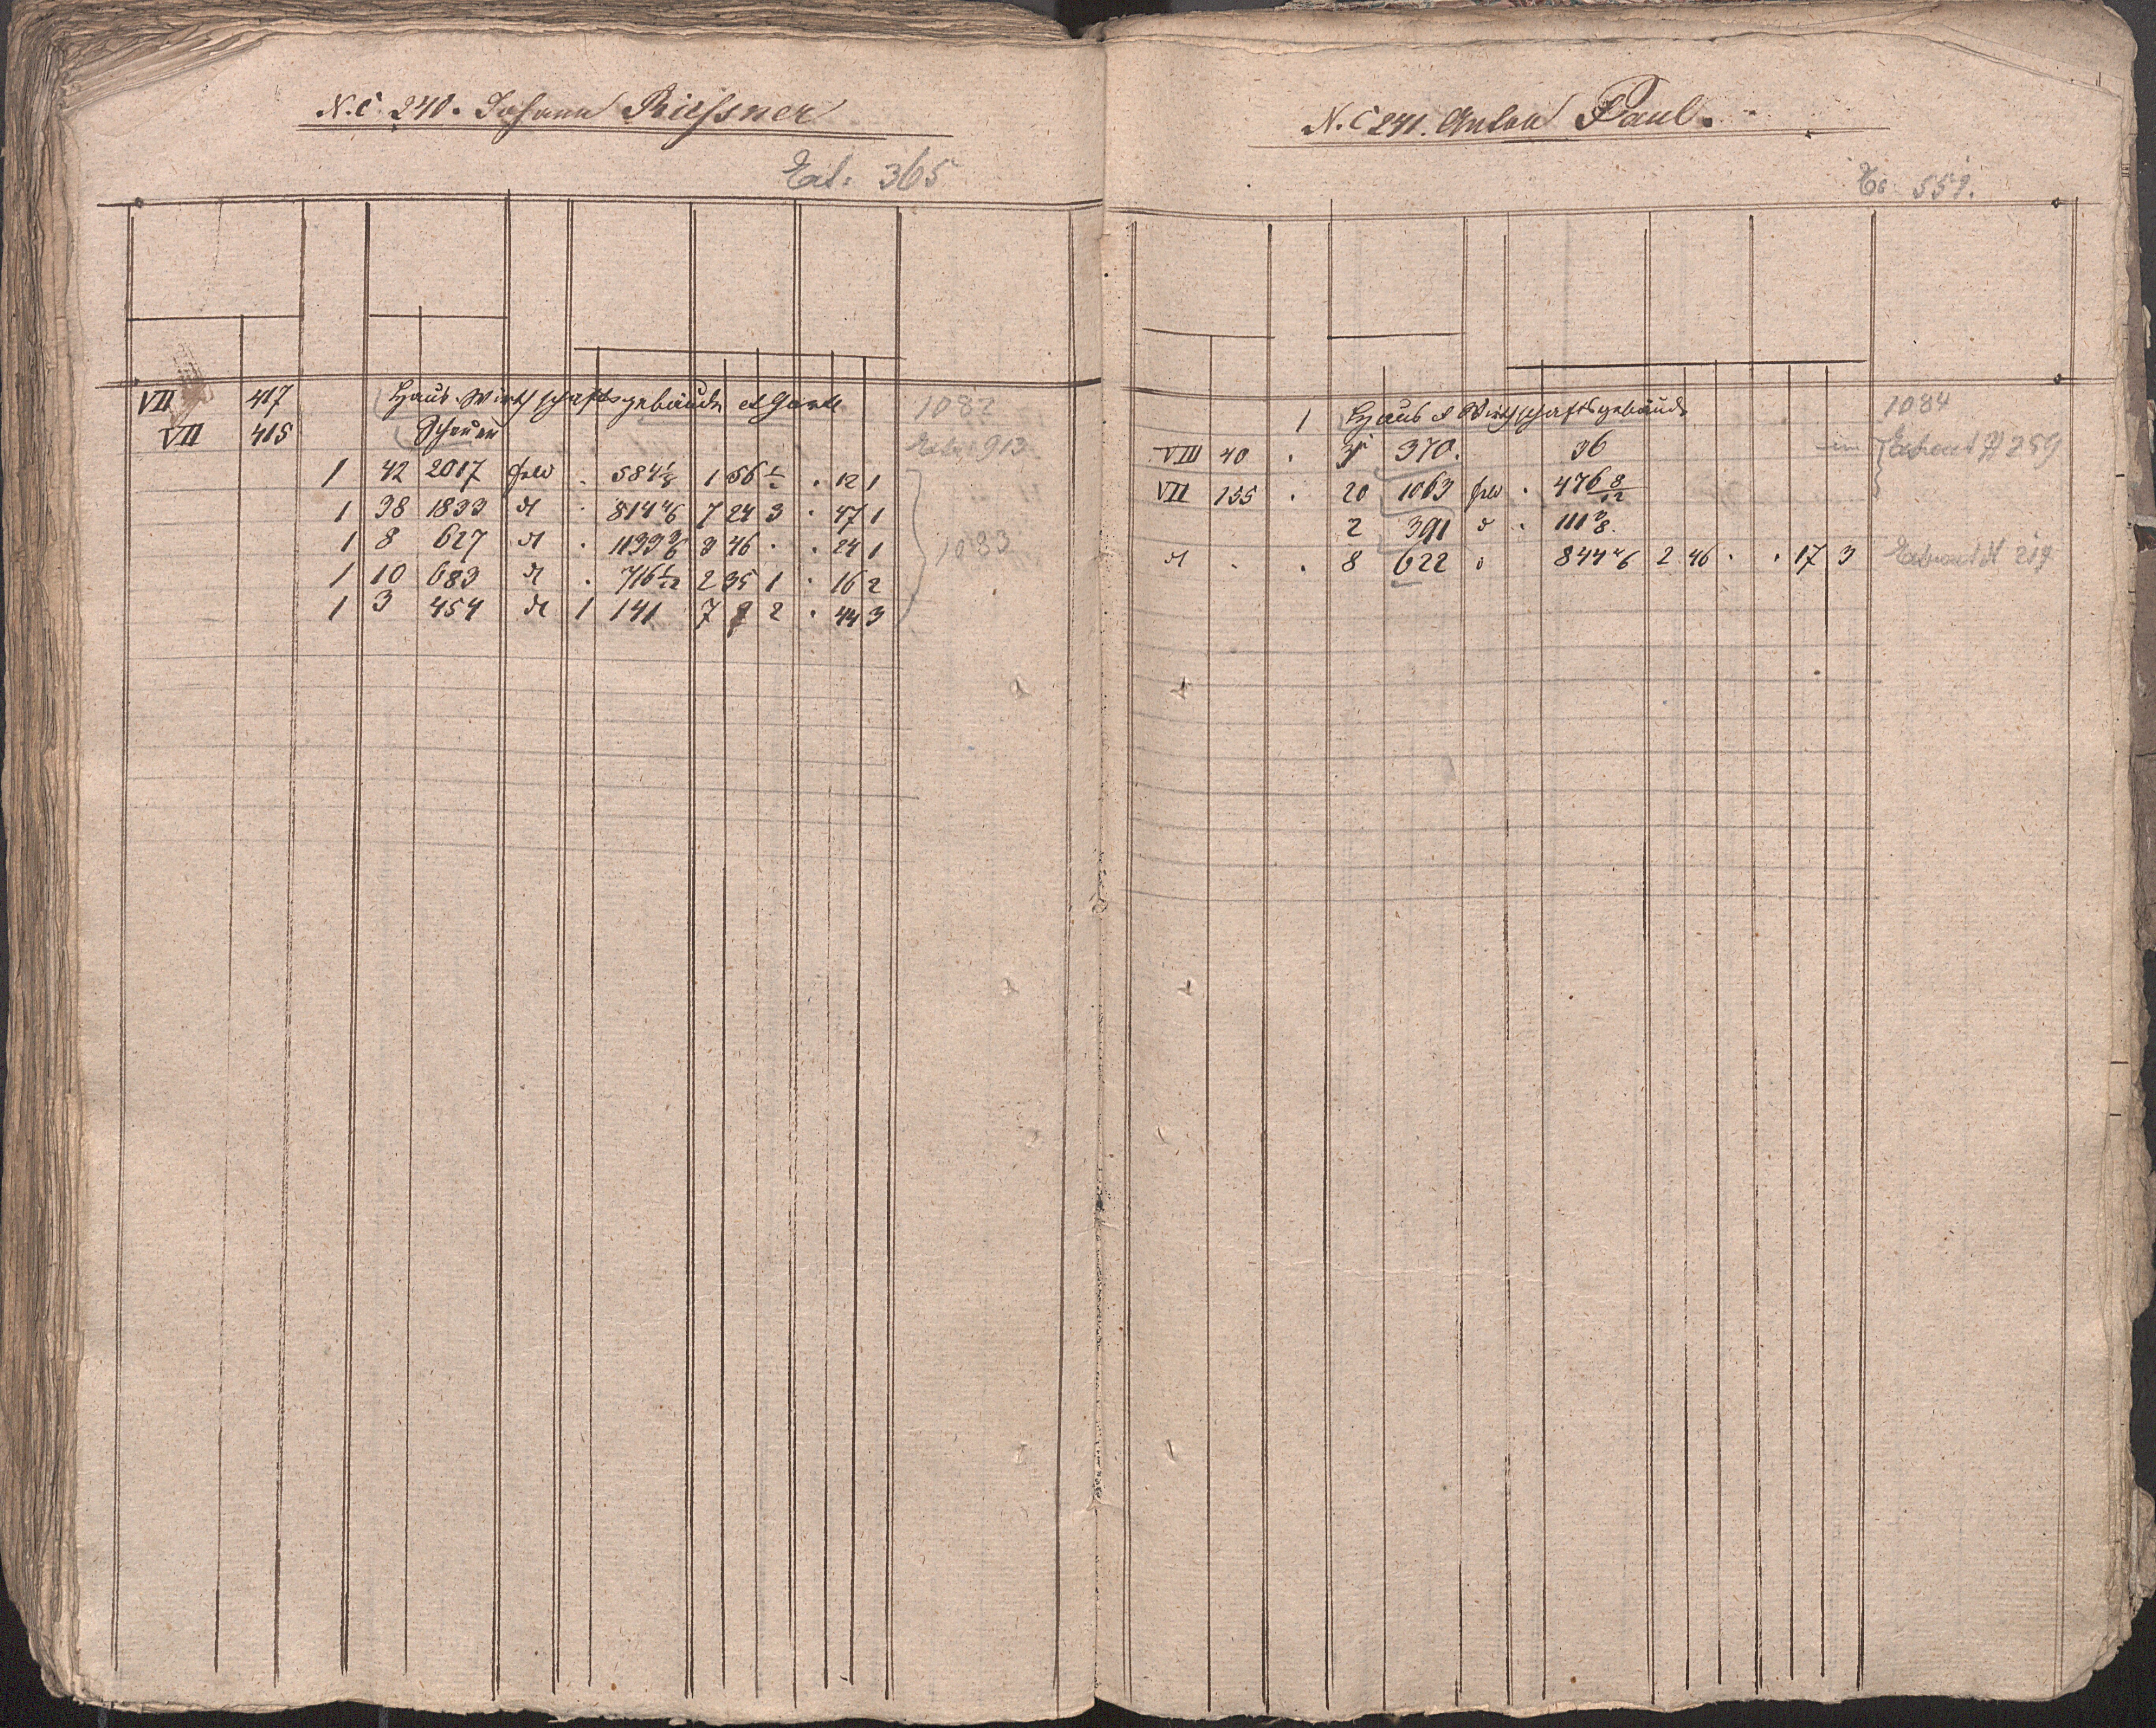 N.C. 240. Johann Riessner
Ext. 365
VII 417 Haus Wirthschaftsgebäude et Garten 1082
VII 415 Scheuer 913
1 42 2017 1 56 . 12 1
1 38 1833 dt . 814 4/6 7 24 3 . 47 1
1 8 627 dt . 1133 3 46 . . 24 1 1083
1 10 683 dt . 716 2 35 1 . 16 2
1 3 454 dt 1 141 7 2 . 44 3
N.C. 241. Anton Paul.
559.
1 Haus et Wirthschaftsgebäude 1084
VIII 40 . 370. 36 259
VII 135 . 20 1063 . 476 8/12
2 391 . 111
dt . . 8 622 844 4/6 2 46 . . 17 3